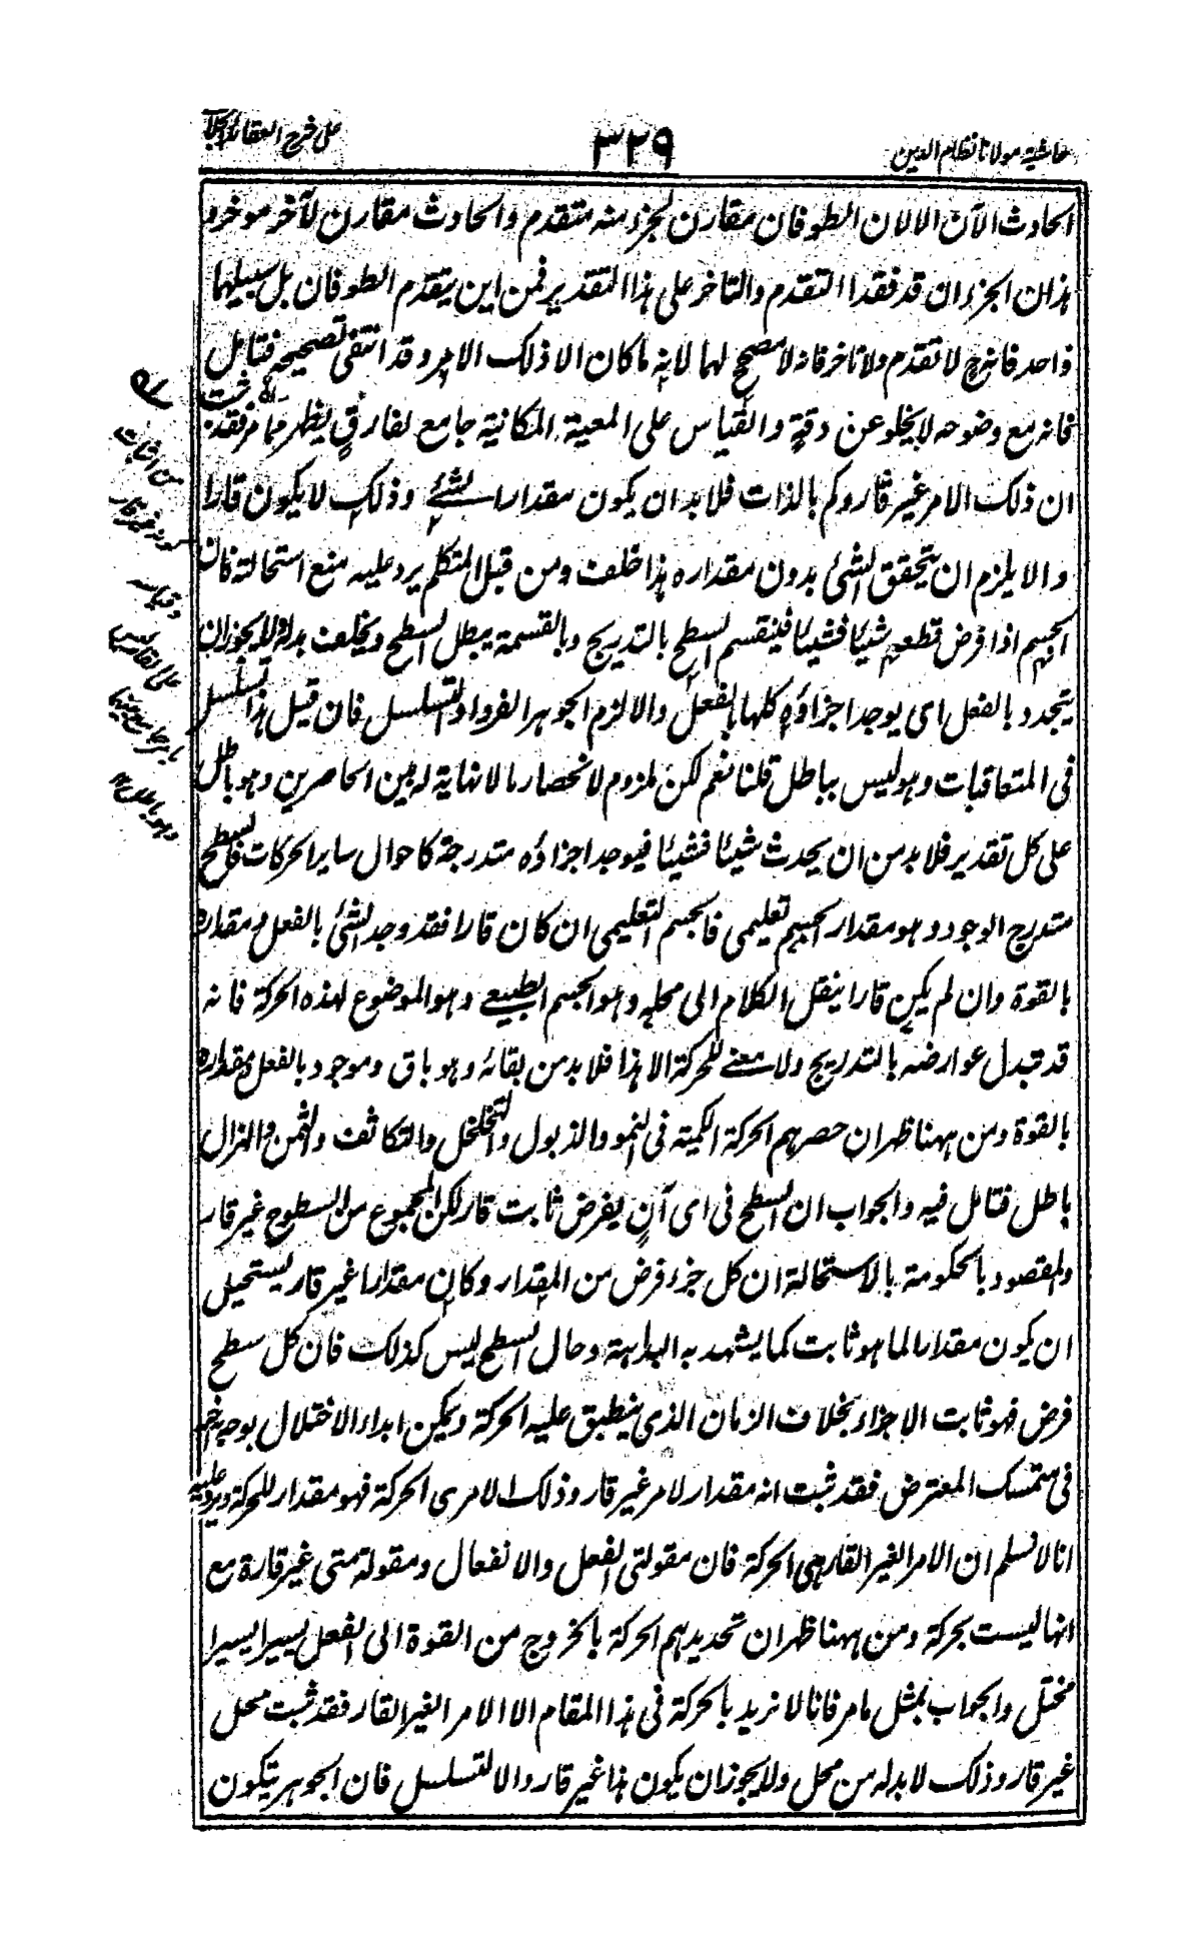 حاشية مولانا نظام الدين
٣٢٩
على شرح العقائد
الحادث الآن الا لان الطوفان مقارن لجزء منه متقدم والحادث مقارن لآخر موخر و
هذان الجزءان قد فقدا التقدم والتاخر على هذا التقدير فمن اين يتقدم الطوفان بل سبيلهما
واحد فانه ح لا تقدم ولا تاخر فانه لا مصحح لهما لانه ما كان الا ذلك الامر وقد انتفى تصحيحه فتامل
فانه مع وضوحه لا يخلو عن دقة والقياس على المعية المكانية جامع لفارق يظهر مما مر فقد
ان ذلك الامر غير قار وكم بالذات فلا بد ان يكون مقدارا لشئ وذلك لا يكون قارا
والا يلزم ان يتحقق الشئ بدون مقداره هذا خلف ومن قبل المتكلم يرد عليه منع استحالته فان
الجسم اذا فرض قطعه شيئا فشيئا فينقسم السطح بالتدريج وبالقسمة يبطل السطح ويخلف بدله ولا يجوز ان
يتجدد بالفعل اى يوجد اجزاؤه كلها بالفعل والا لزم الجوهر الفرد او التسلسل فان قيل هذا تسلسل
فى المتعاقبات وهو ليس بباطل قلنا نعم لكن ملزوم لانحصار مالا نهاية له بين الحاصرين وهو باطل
على كل تقدير فلا بد من ان يحدث شيئا فشيئا فيوجد اجزاؤه متدرجة كاحوال ساير الحركات فالسطح
متدرج الوجود وهو مقدار لجسم تعليمى فالجسم التعليمى ان كان قارا فقد وجد الشئ بالفعل ومقداره
بالقوة وان لم يكن قارا ينقل الكلام الى محله وهو الجسم الطبيعى وهو الموضوع لهذه الحركة فانه
قد تبدل عوارضه بالتدريج ولا معنى للحركة الا هذا فلا بد من بقائه وهو باق وموجود بالفعل ومقداره
بالقوة ومن ههنا ظهر ان حصرهم الحركة الكمية فى النمو والذبول والتخلخل والتكاثف والسمن والهزال
باطل فتامل فيه والجواب ان السطح فى اى آن يفرض ثابت قار لكن المجموع من السطوح غير قار
والمقصود بالحكومة بالاستحالة ان كل جزء فرض من المقدار وكان مقدارا غير قار يستحيل
ان يكون مقدارا لما هو ثابت كما يشهد به البداهة وحال السطح ليس كذلك فان كل سطح
فرض فهو ثابت الاجزاء بخلاف الزمان الذى ينطبق عليه الحركة ويمكن ابداء الاختلال بوجه آخر
فى متمسك المعترض فقد ثبت انه مقدار لامر غير قار وذلك الامر هى الحركة فهو مقدار للحركة ويرد عليه
انا لا نسلم ان الامر الغير القار هى الحركة فان مقولتى الفعل والانفعال ومقولة متى غير قارة مع
انها ليست بحركة ومن ههنا ظهر ان تحديدهم الحركة بالخروج من القوة الى الفعل يسيرا يسيرا
مختل والجواب بمثل ما مر فانا لا نريد بالحركة فى هذا المقام الا الامر الغير القار فقد ثبت محل
غير قار وذلك لا بد له من محل ولا يجوز ان يكون هذا غير قار والا لتسلسل فان الجوهر يتكون
من اثبات
كونه غير قار
وقياسه